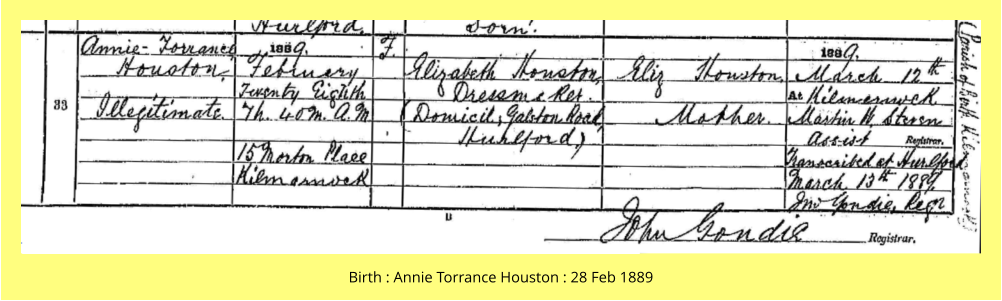 Hurlford. Born.
33
Annie Torrance
Houston,
Illegitimate.
1889.
February
Twenty Eighth
7h. 40 M. A.M
15 Morton Place
Kilmarnock
F.
Elizabeth Houston,
Dressmaker.
(Domicil, Galston Road,
Hurlford)
Eliz Houston,
Mother.
1889.
March 12th
At Kilmarnock
Martin W. Steven
Assist Registrar.
Transcribed at Hurlford
March 13th 1889,
Jno Gondie, Regr
(Parish of Birth Kilmarnock)
John Gondie Registrar.
Birth : Annie Torrance Houston : 28 Feb 1889